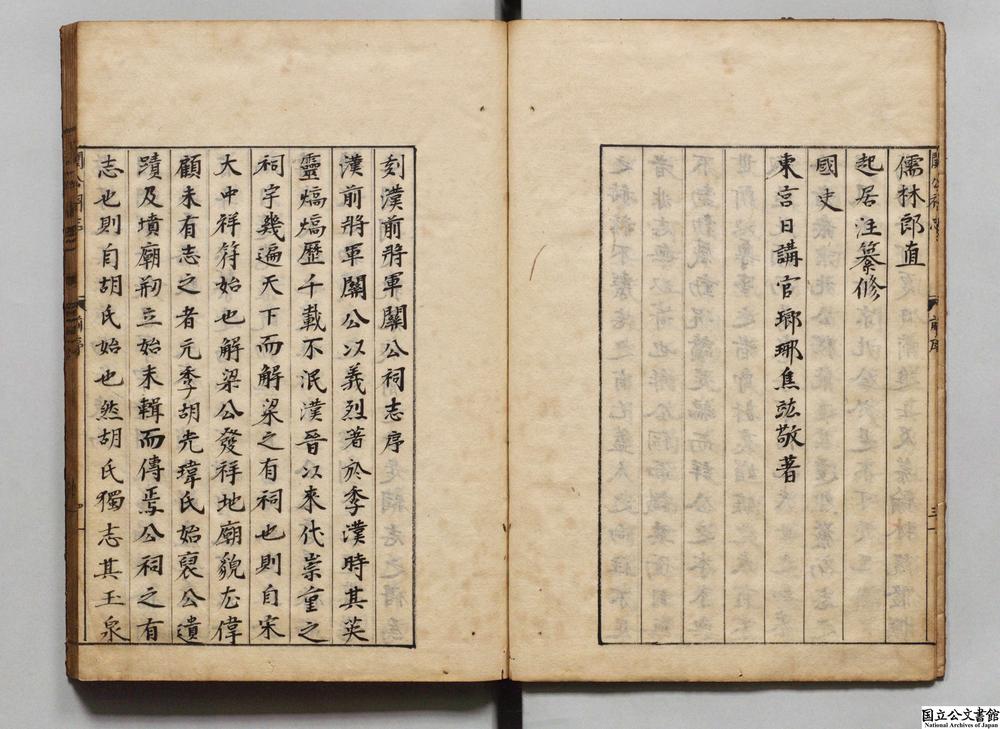 儒林郎直
起居注纂修
國史
東宮日講官瑯琊焦竑敬著
刻漢前將軍關公祠志序
漢前將軍關公以義烈著於季漢時其英
靈熇熇歷千載不泯漢晉以來代崇重之
祠宇幾遍天下而解梁之有祠也則自宋
大中祥符始也解梁公發祥地廟貌尤偉
顧未有志之者元季胡光瑋氏始裒公遺
蹟及墳廟刱立始末輯而傳焉公祠之有
志也則自胡氏始也然胡氏獨志其玉泉
国立公文書館
National Archives of Japan